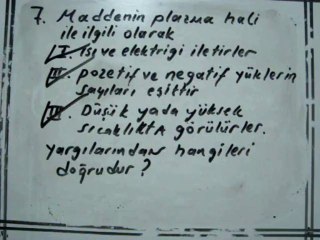 7. Maddenin plazma hali
ile ilgili olarak
I. Isı ve elektrigi iletirler
II. pozetif ve negatif yüklerin
sayıları eşittir
III. Düşük yada yüksek
sıcaklıkta görülürler.
yargılarından hangileri
doğrudur?